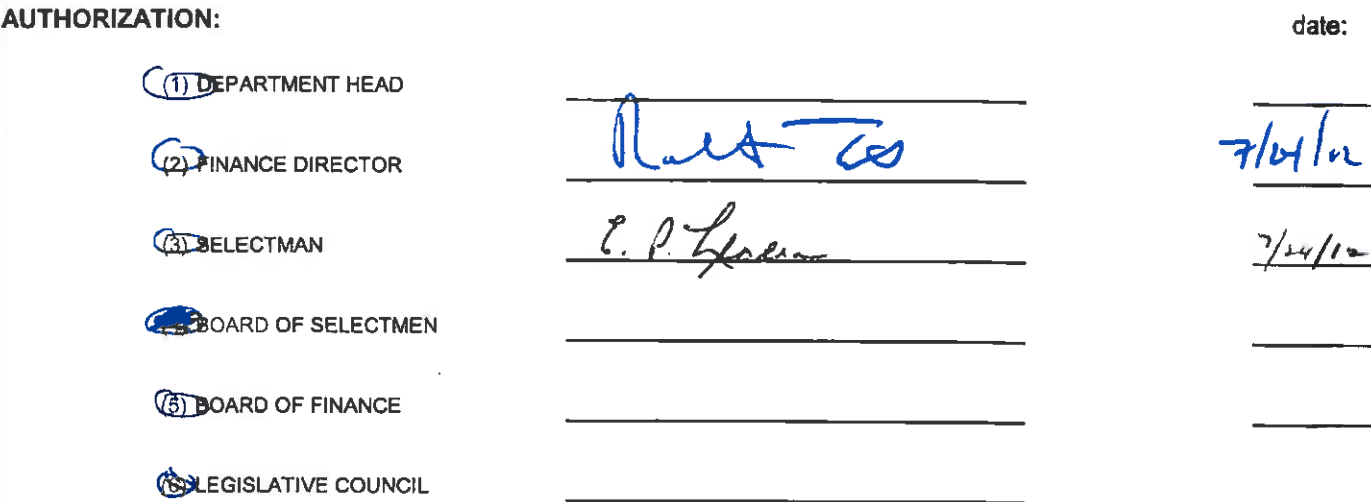 AUTHORIZATION: date:
(1) DEPARTMENT HEAD
(2) FINANCE DIRECTOR 7/24/12
(3) SELECTMAN E. P. 7/24/12
BOARD OF SELECTMEN
(5) BOARD OF FINANCE
(6) LEGISLATIVE COUNCIL